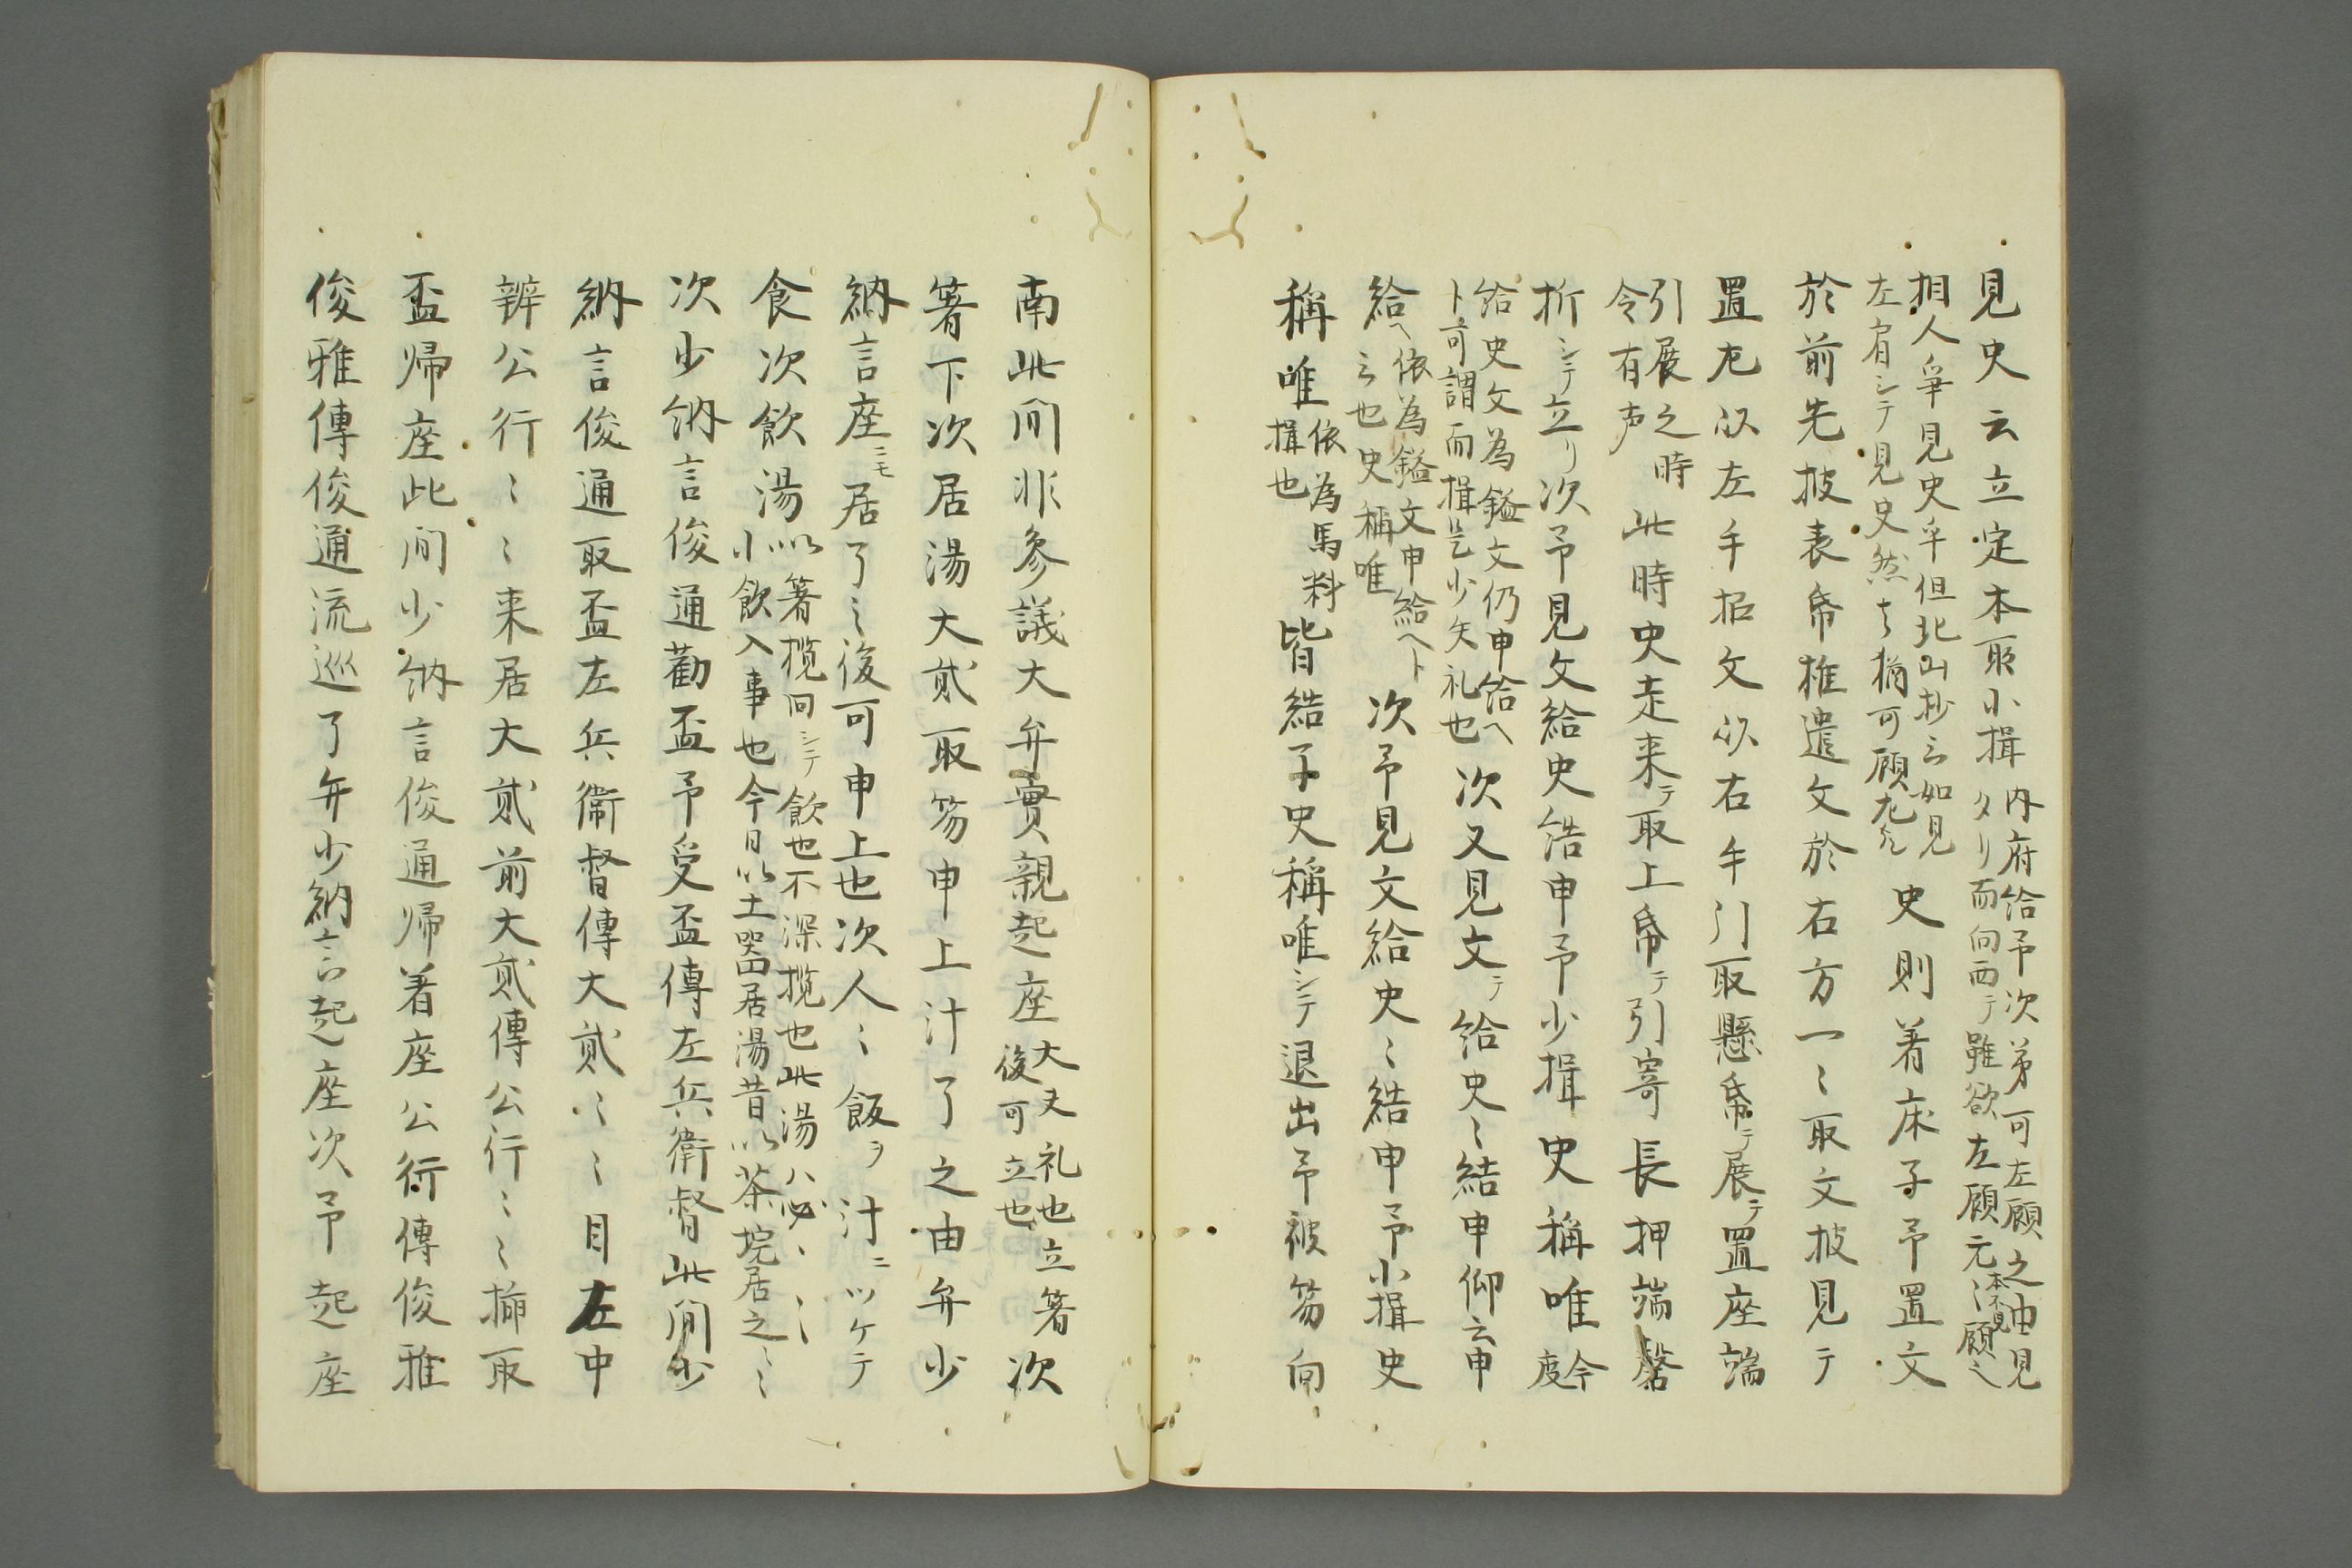 見史云立定本所小揖内府給予次第可左顧之由見
タリ而向西テ雖欲左顧元来不見顧之
相人爭見史乎但北山抄云如見
左肩シテ見史然者猶可顧左 史則着床子予置文
於前先披表帋推遣文於右方一〻取文披見テ
置左以左手招文以右手引取懸帋テ展テ置座端
引展之時
令有声 此時史走来テ取上帋テ引寄長押端
折シテ立リ次予見文給史結申予少揖史稱唯今度
給史文為鎰文仍申給ヘ
ト可謂而揖是少失礼也 次又見文テ給史〻結申仰云申
給ヘ依為鎰文申給ヘト
云也史稱唯 次予見文給史〻結申予小揖史
稱唯依為馬料
揖也 皆結了史稱唯シテ退出予被笏向
南此間非參議大弁實親起座大夫礼也立箸
後可立也 次
箸下次居湯大貳取笏申上汁了之由弁少
納言座ニモ居了〻後可申上也次人〻飯ヲ汁ニツケテ
食次飲湯以箸攬回シテ飲也不深攬也此湯ハ必〻〻
小飲入事也今日以土器居湯昔以茶埦居之〻
次少納言俊通勸盃予受盃傳左兵衛督此間少
納言俊通取盃左兵衛督傳大貳〻〻目左中
辨公行〻〻来居大貳前大貳傳公行〻〻搢取
盃帰座此間少納言俊通帰着座公行傳俊雅
俊雅傳俊通流巡了弁少納言起座次予起座